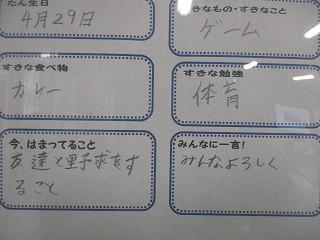 たん生日
4月29日
きなもの・すきなこと
ゲーム
すきな食べ物
カレー
すきな勉強
体育
今、はまってること
友達と野球をす
ること
みんなに一言!
みんなよろしく